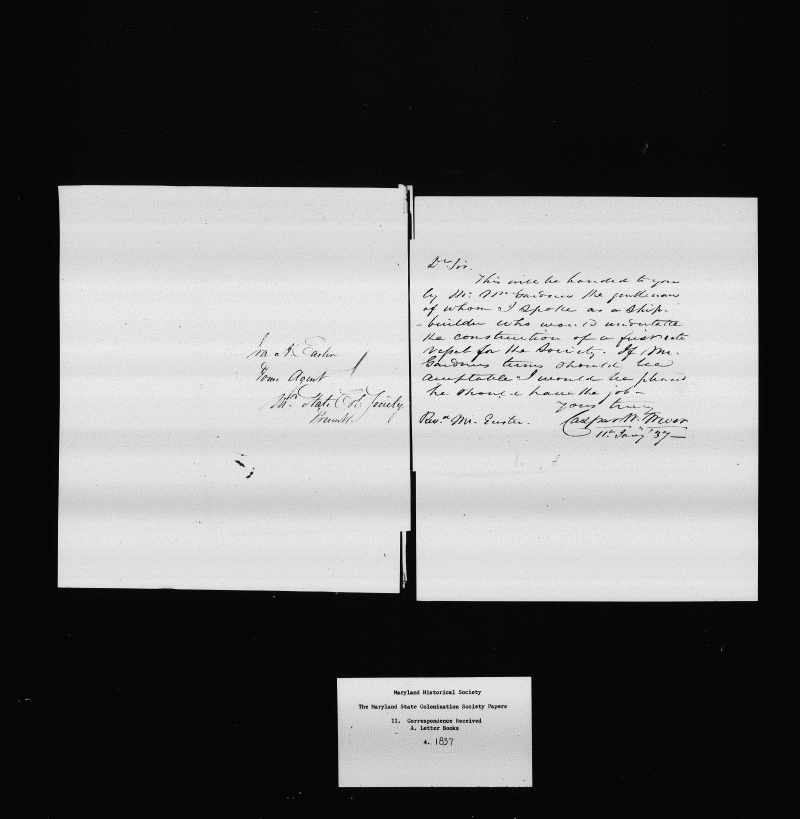 Ira A. Easter
Home Agent
Md. State Col. Society
Present.
Dr Sir.
This will be handed to you
by Mr. Wm Gardner the gentleman
of whom I spoke as a ship-
-builder who would undertake
the construction of a first rate
vessel for the Society. If Mr.
Gardners terms should be
acceptable I would be pleased
he should have the job—
yours truly
Caspar W. Wever
Revd. Mr. Easter.
11th Jany '37—
Maryland Historical Society
The Maryland State Colonization Society Papers
II. Correspondence Received
A. Letter Books
4. 1837